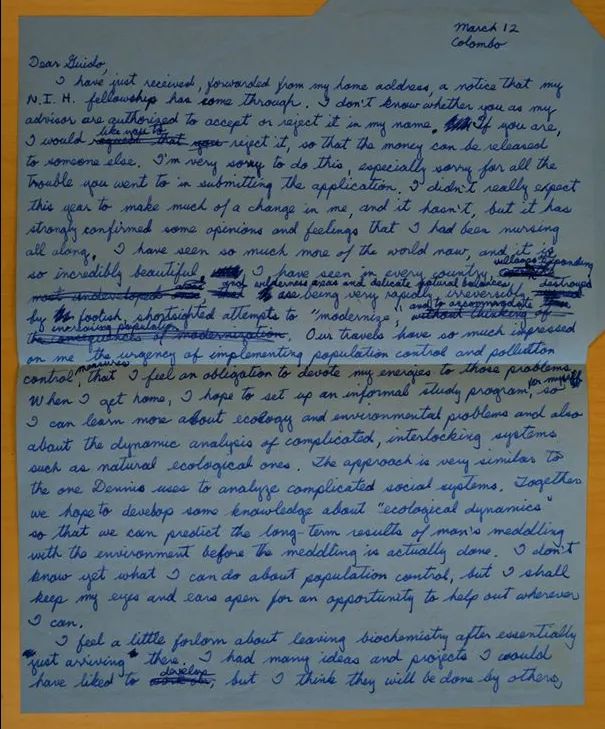 March 12
Colombo
Dear Guido,
I have just received, forwarded from my home address, a notice that my
N.I.H. fellowship has come through. I don't know whether you as my
advisor are authorized to accept or reject it in my name. If you are,
like you to
I would request that you reject it, so that the money can be released
to someone else. I'm very sorry to do this, especially sorry for all the
trouble you went to in submitting the application. I didn't really expect
this year to make much of a change in me, and it hasn't, but it has
strongly confirmed some opinions and feelings that I had been nursing
all along. I have seen so much more of the world now, and it is
villages expanding
so incredibly beautiful I have seen in every country,
and wilderness areas and delicate natural balances destroyed
most undeveloped being very rapidly, irreversibly
and to accommodate
by foolish, shortsighted attempts to "modernize", without thinking of
increasing population
the consequences of modernization. Our travels have so much impressed
on me the urgency of implementing population control and pollution
measures
control, that I feel an obligation to devote my energies to those problems.
for myself
When I get home, I hope to set up an informal study program, so
I can learn more about ecology and environmental problems and also
about the dynamic analysis of complicated, interlocking systems
such as natural ecological ones. The approach is very similar to
the one Dennis uses to analyze complicated social systems. Together
we hope to develop some knowledge about "ecological dynamics"
so that we can predict the long-term results of man's meddling
with the environment before the meddling is actually done. I don't
know yet what I can do about population control, but I shall
keep my eyes and ears open for an opportunity to help out wherever
I can.
I feel a little forlorn about leaving biochemistry after essentially
"just arriving" there. I had many ideas and projects I would
develop
have liked to work on, but I think they will be done by others,